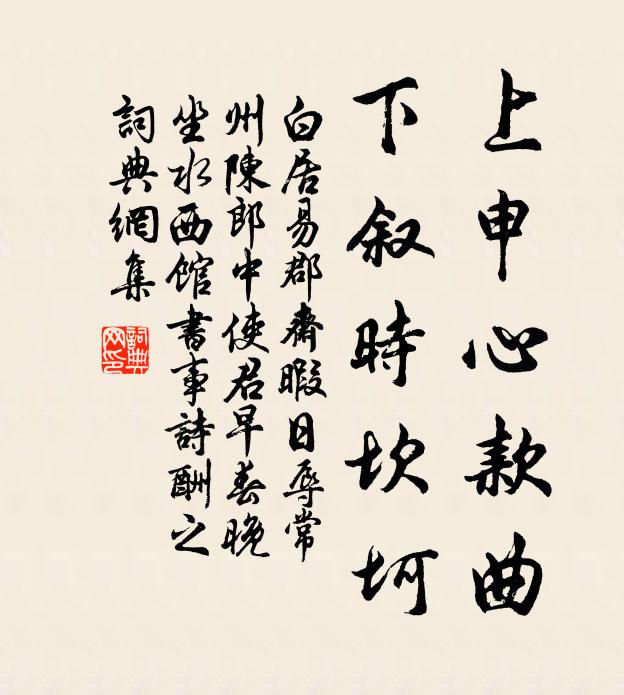 上申心款曲
下叙時坎坷
白居易郡齋暇日辱常
州陳郎中使君早春晚
坐水西館書事詩酬之
詞典網集
詞典
网印